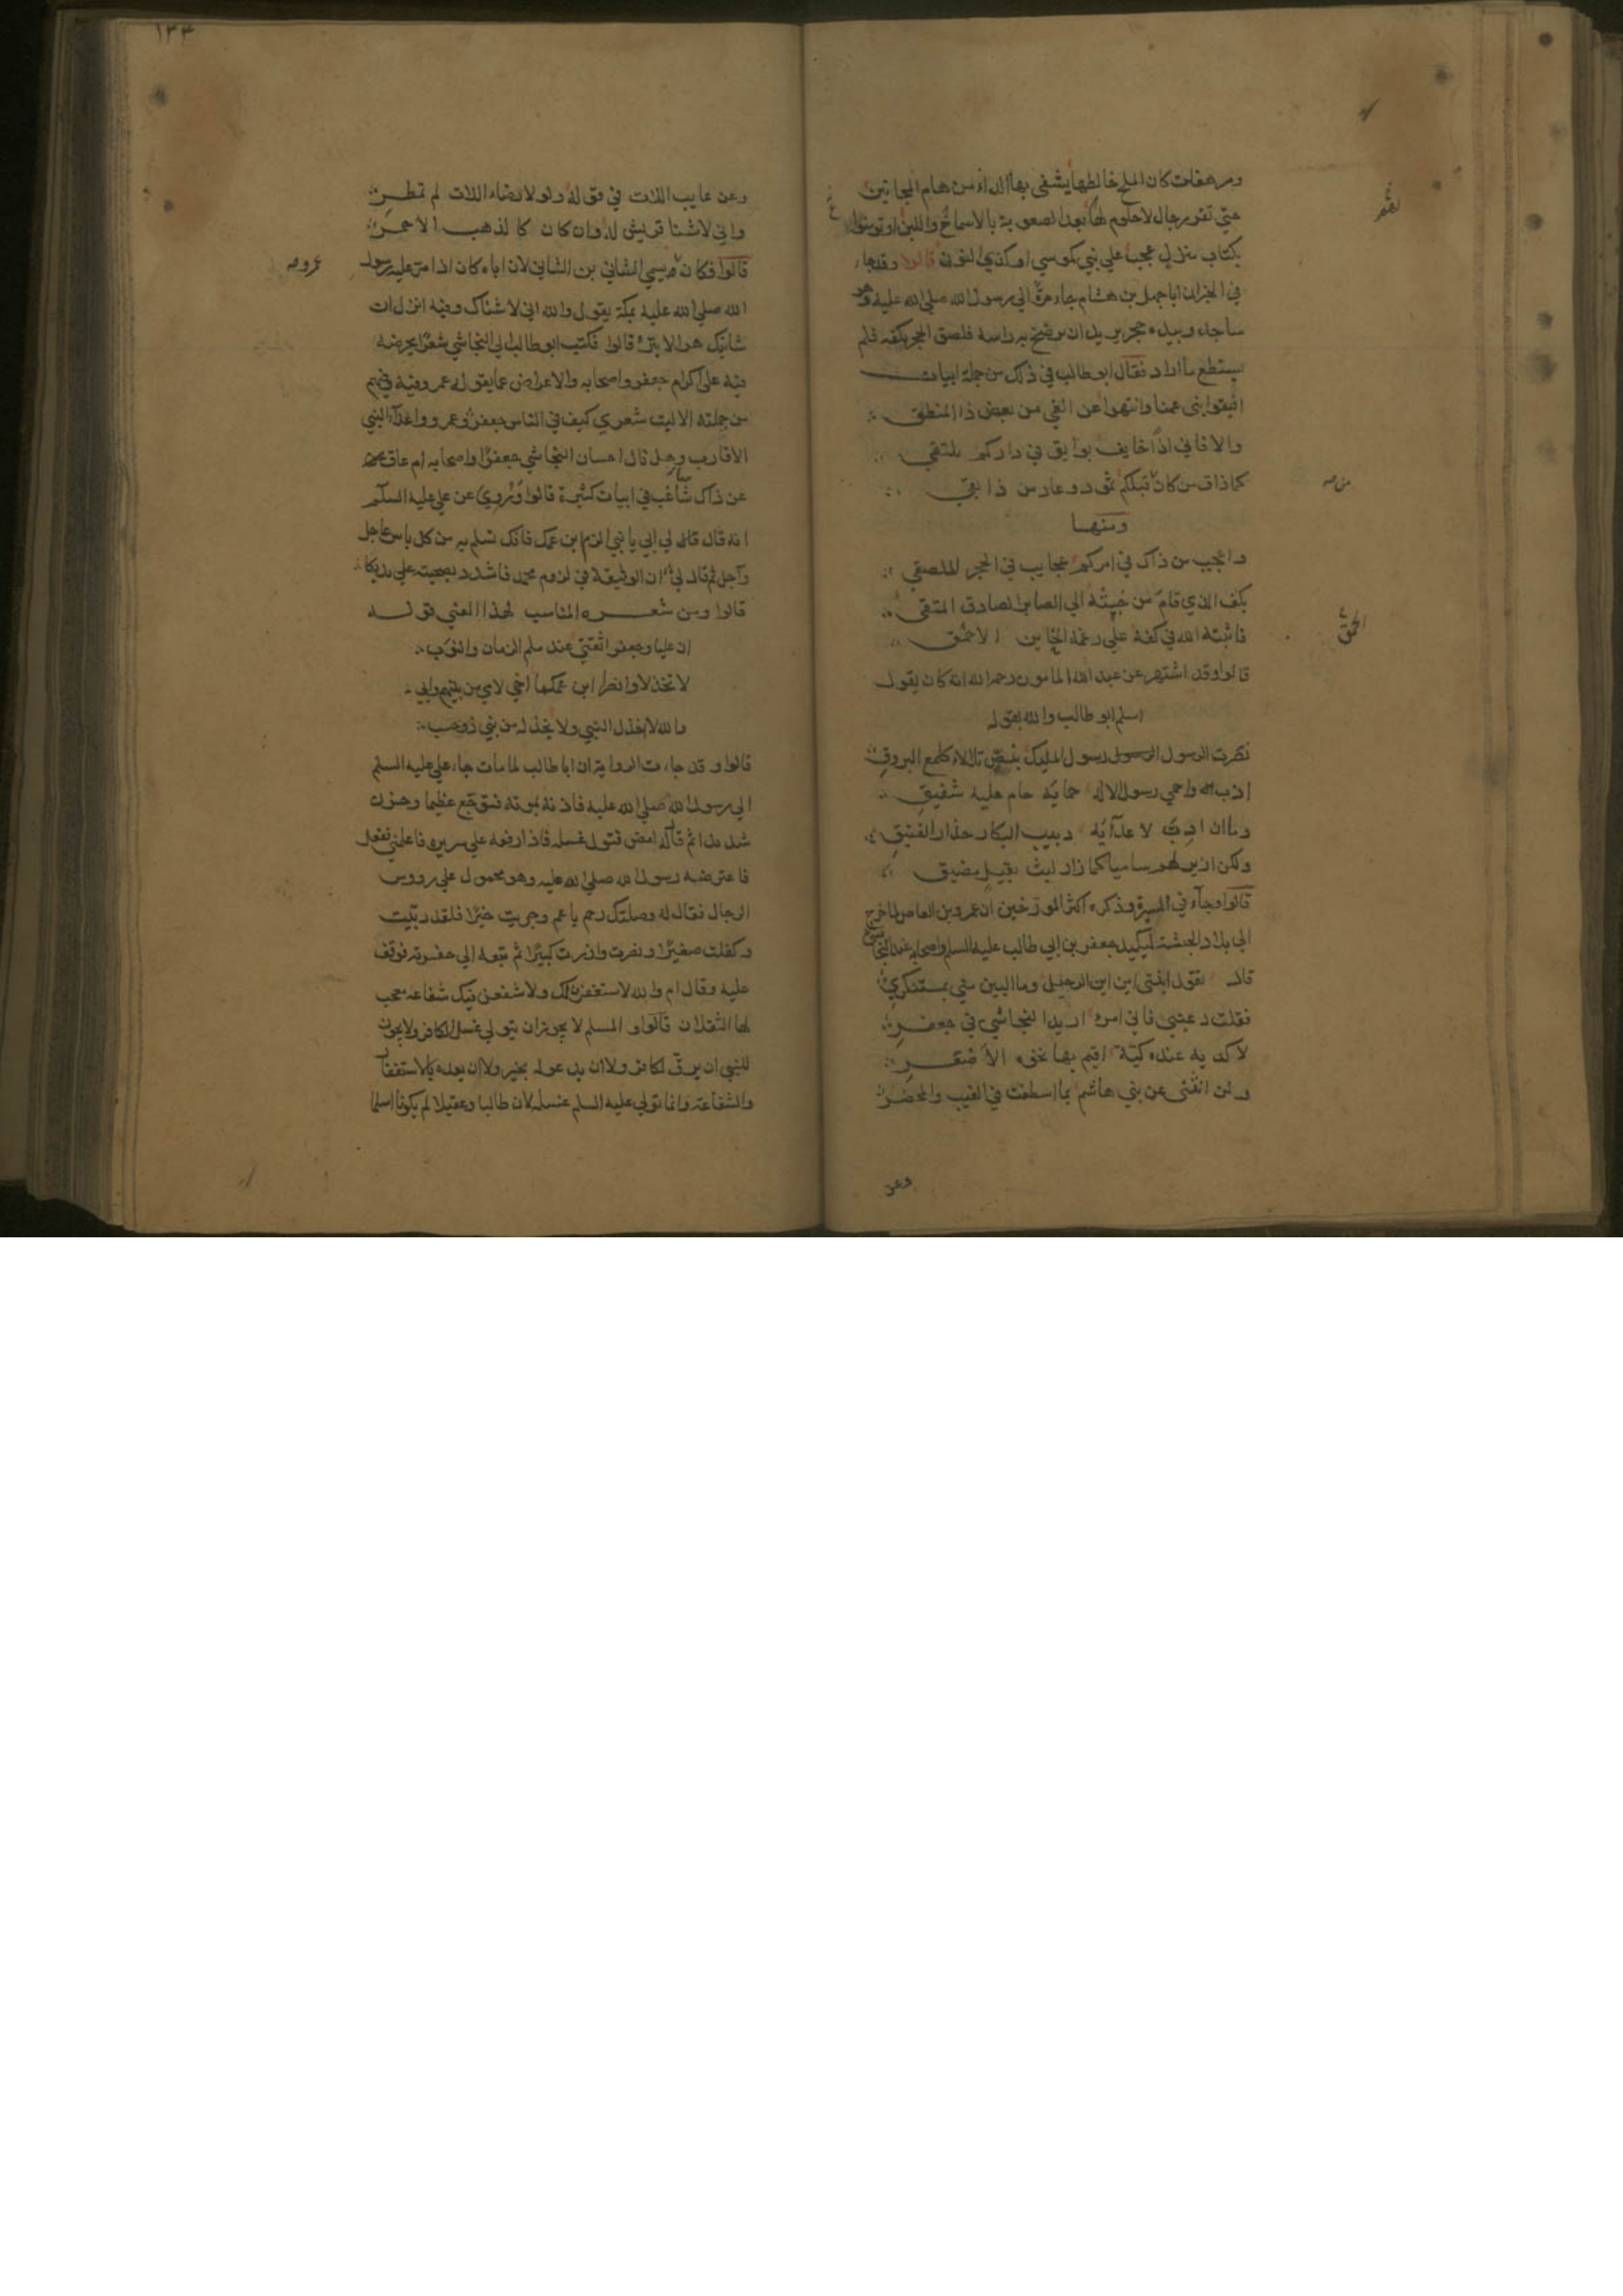 ومرهفات كان الملح خالطها يشفى بها الداء من هام المجانين
حتى تقر رجال لاحلوم لها بعد الصعوبة بالاسماح واللين او تومنوا
بكتاب منزل عجب على نبي كموسى او كذي النون قالوا وقد جاء
في الخبر ان ابا جهل بن هشام جاء مرة الي رسول الله صلى الله عليه وهو
ساجد وبيده حجر يريد ان يرضخ به راسه فلصق الحجر بكفه فلم
يستطع ما اراد فقال ابو طالب في ذلك من جملة ابيات
افيقوا بني عمنا وانتهوا عن الغي من بعض ذا المنطق
والا فاني اذا خايف بوايق في داركم يلتقي
كما ذاق من كان قبلكم ثمود وعاد من ذا بقي
ومنها
واعجب من ذاك في امركم عجايب في الحجر الملصق
بكف الذي قام من خبثه الي الصابر الصادق المتقي
فاثبته الله في كفه علي رغمه الخاين الاحمق
قالوا وقد اشتهر عن عبد الله المامون رحمه الله انه كان يقول
اسلم ابو طالب والله بقوله
نصرت الرسول رسول المليك ببيض تلالا كلمع البروق
اذب واحمي رسول الاله حماية حام عليه شفيق
وما ان ادب لاعدايه دبيب البكار حذار الفنيق
ولكن ازير لهم ساميا كما زار ليث بغيل مضيق
قالوا وجاء في السيرة وذكره اكثر المورخين ان عمرو بن العاص لما خرج
الي بلاد الحبشة ليكيد جعفر بن ابي طالب عليه السلم واصحابه عند النجاشي
قال تقول ابنتي اين اين الرحيل وما البين مني بمستنكر
فقلت دعيني فاني امرء اريد النجاشي في جعفر
لاكديه عنده كية اقيم بها نخوة الاصعر
ولن انثني عن بني هاشم بما اسطعت في الغيب والمحضر
وعن
١٣٣
وعن عايب اللات في قوله ولولا رضاء اللات لم تمطر
واني لاشنا قريش له وان كان كالذهب الاحمر
قالوا فكان عمرو يسمي الشاني بن الشاني لان اباه كان اذا مر عليه رسول
الله صلى الله عليه بمكة يقول والله اني لاشناك وفيه انزل ان
شانئك هو الابتر قالوا فكتب ابو طالب الي النجاشي شعرا يحرضه
فيه على اكرام جعفر واصحابه والاعراض عما يقوله عمرو فيه وفيهم
من جملته الا ليت شعري كيف في الناس جعفر وعمرو واعداء النبي
الاقارب وهل نال احسان النجاشي جعفرا واصحابه ام عاق
عن ذاك شاغب في ابيات كثيرة قالوا وروي عن علي عليه السلم
انه قال قال لي ابي يا بني الزم ابن عمك فانك تسلم به من كل باس عاجل
وآجل ثم قال لي ان الوثيقة في لزوم محمد فاشدد بصحبته علي يديكا
قالوا ومن شعره المناسب لهذا المعني قوله
ان عليا وجعفرا ثقتي عند ملم الزمان والنوب
لا تخذلا وانصرا ابن عمكما اخي لامي من بينهم وابي
والله لا اخذل النبي ولا يخذله من بني ذو حسب
قالوا وقد جاءت الرواية ان ابا طالب لما مات جاء علي عليه السلم
الي رسول الله صلى الله عليه فاذنه بموته فتوجع عظيما وحزن
شديدا ثم قال له امض فتول غسله فاذا رفعته علي سريره فاعلمني ففعل
فاعترضه رسول الله صلى الله عليه وهو محمول علي رووس
الرجال فقال له وصلتك رحم يا عم وجزيت خيرا فلقد ربيت
وكفلت صغيرا ونصرت وازرت كبيرا ثم تبعه الي حفرته فوقف
عليه وقال ام والله لاستغفرن لك ولاشفعن فيك شفاعة يعجب
لها الثقلان قالوا والمسلم لا يجوز ان يتولي غسل الكافر ولا يجوز
للنبي ان يرق لكافر ولا ان يدعو له بخير ولا ان يعده بالاستغفار
والشفاعة وانما تولي عليه السلم غسله لان طالبا وعقيلا لم يكونا اسلما